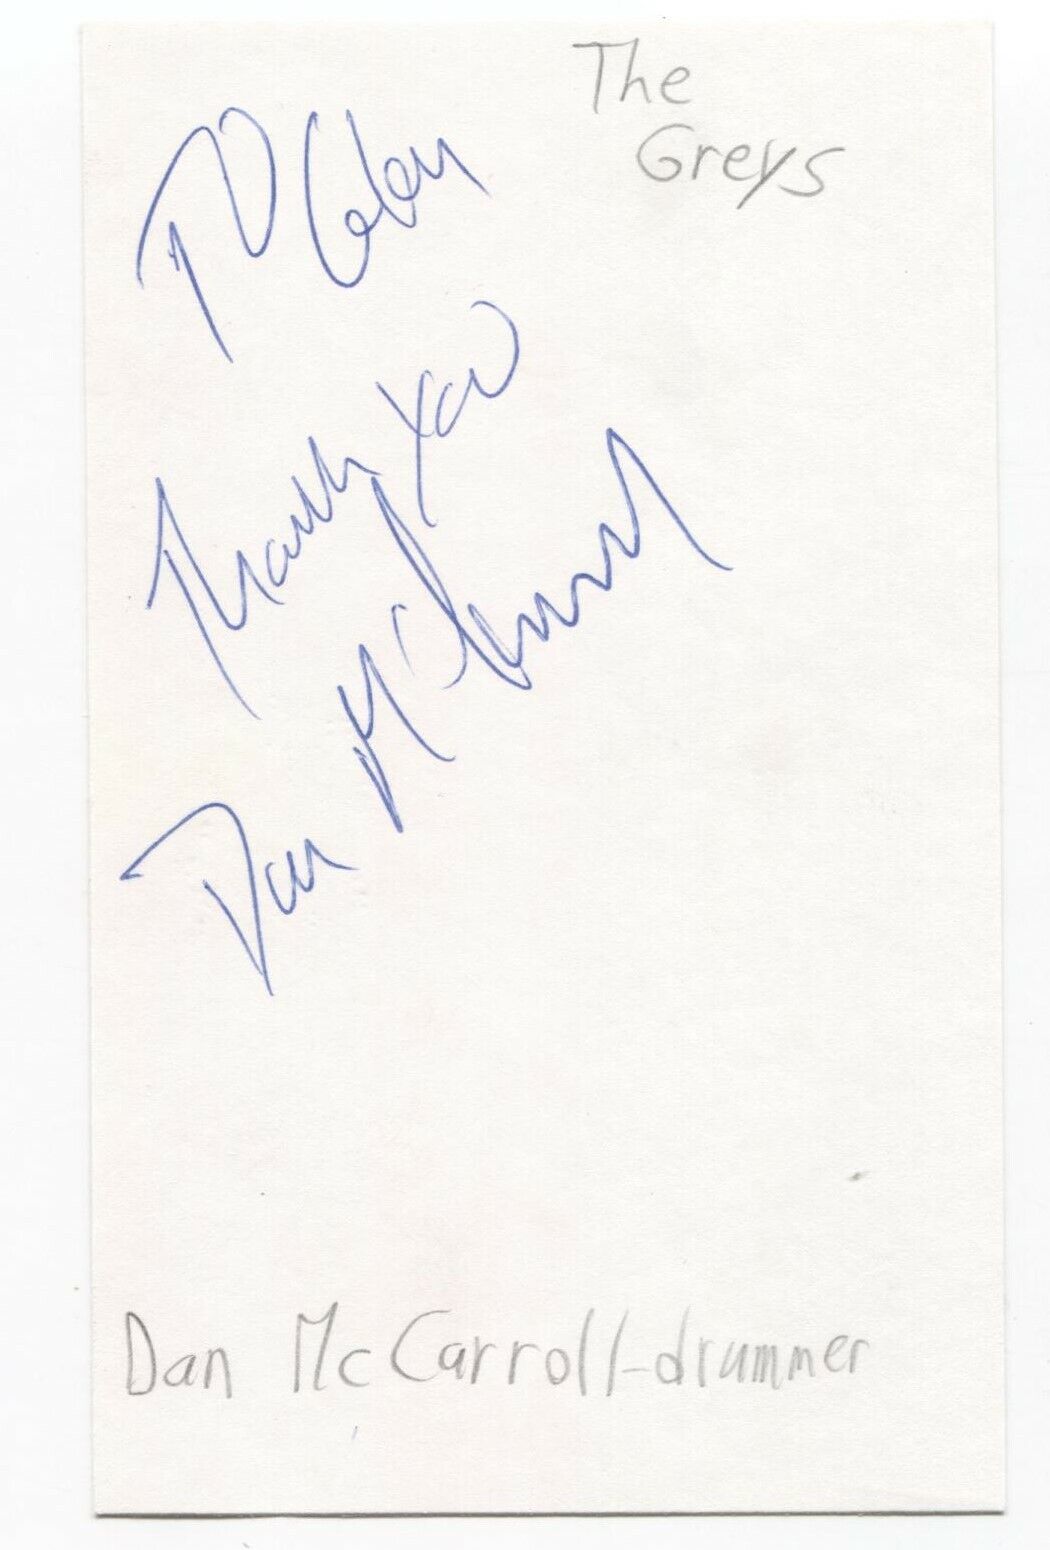 The
Greys
TO Glen
Thank You
Dan McCarroll
Dan McCarroll-drummer